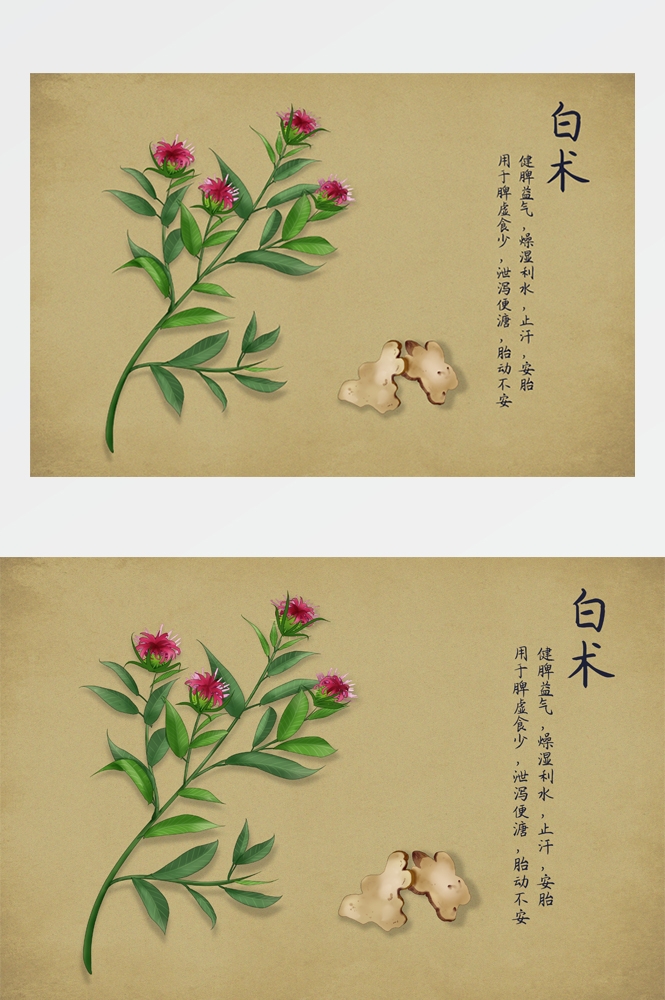 白术
健脾益气，燥湿利水，止汗，安胎
用于脾虚食少，泄泻便溏，胎动不安
白术
健脾益气，燥湿利水，止汗，安胎
用于脾虚食少，泄泻便溏，胎动不安